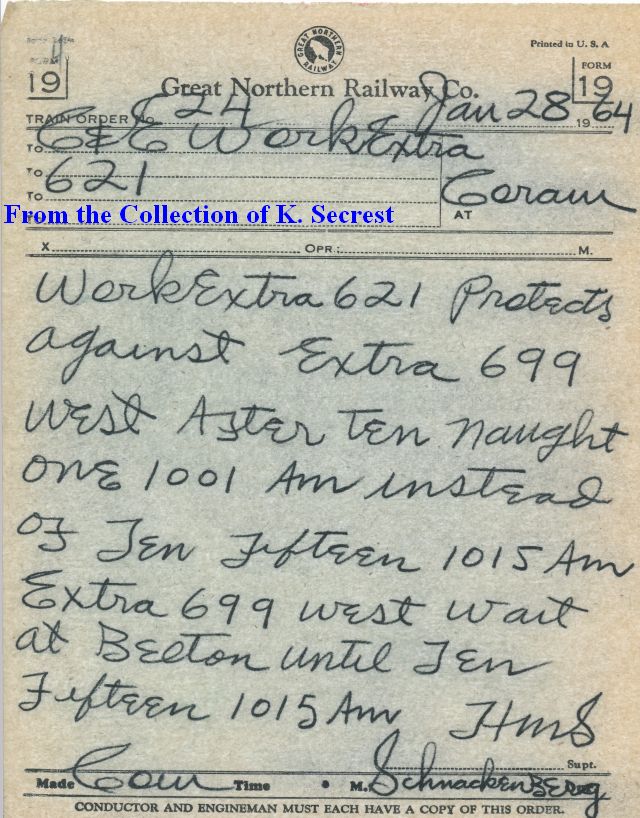 GREAT NORTHERN RAILWAY
Printed in U. S. A
FORM
19
19
Great Northern Railway Co.
TRAIN ORDER No. 24 Jan 28 19 64
TO C&E Work Extra
TO 621
TO
AT Coram
From the Collection of K. Secrest
X OPR.: M.
Work Extra 621 Protects
against Extra 699
West After Ten Naught
one 1001 Am instead
of Ten Fifteen 1015 Am
Extra 699 West Wait
at Belton until Ten
Fifteen 1015 Am HMS
Supt.
Made Com Time M. Schnackenberg
CONDUCTOR AND ENGINEMAN MUST EACH HAVE A COPY OF THIS ORDER.